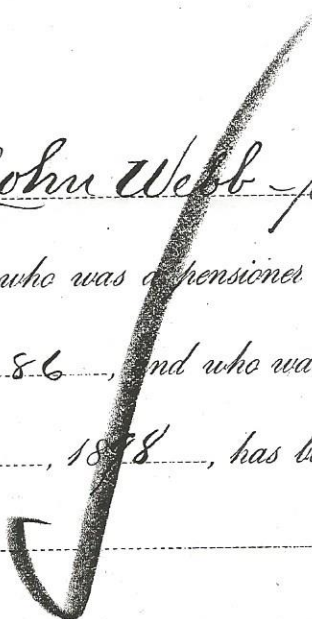 John Webb
who was a pensioner
86, and who wa
, 1898, has b